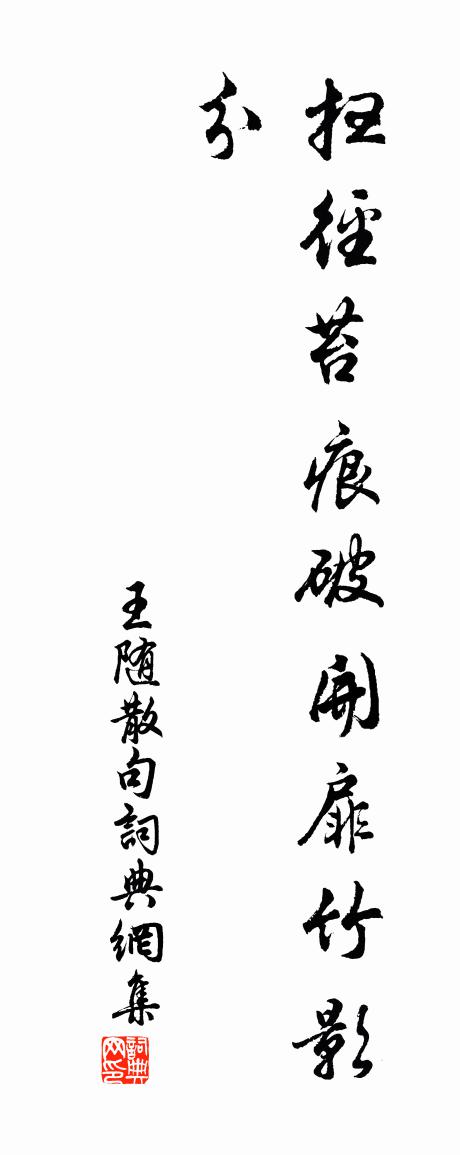 扫徑苔痕破開扉竹影
分
王随散句詞典網集
詞典网印